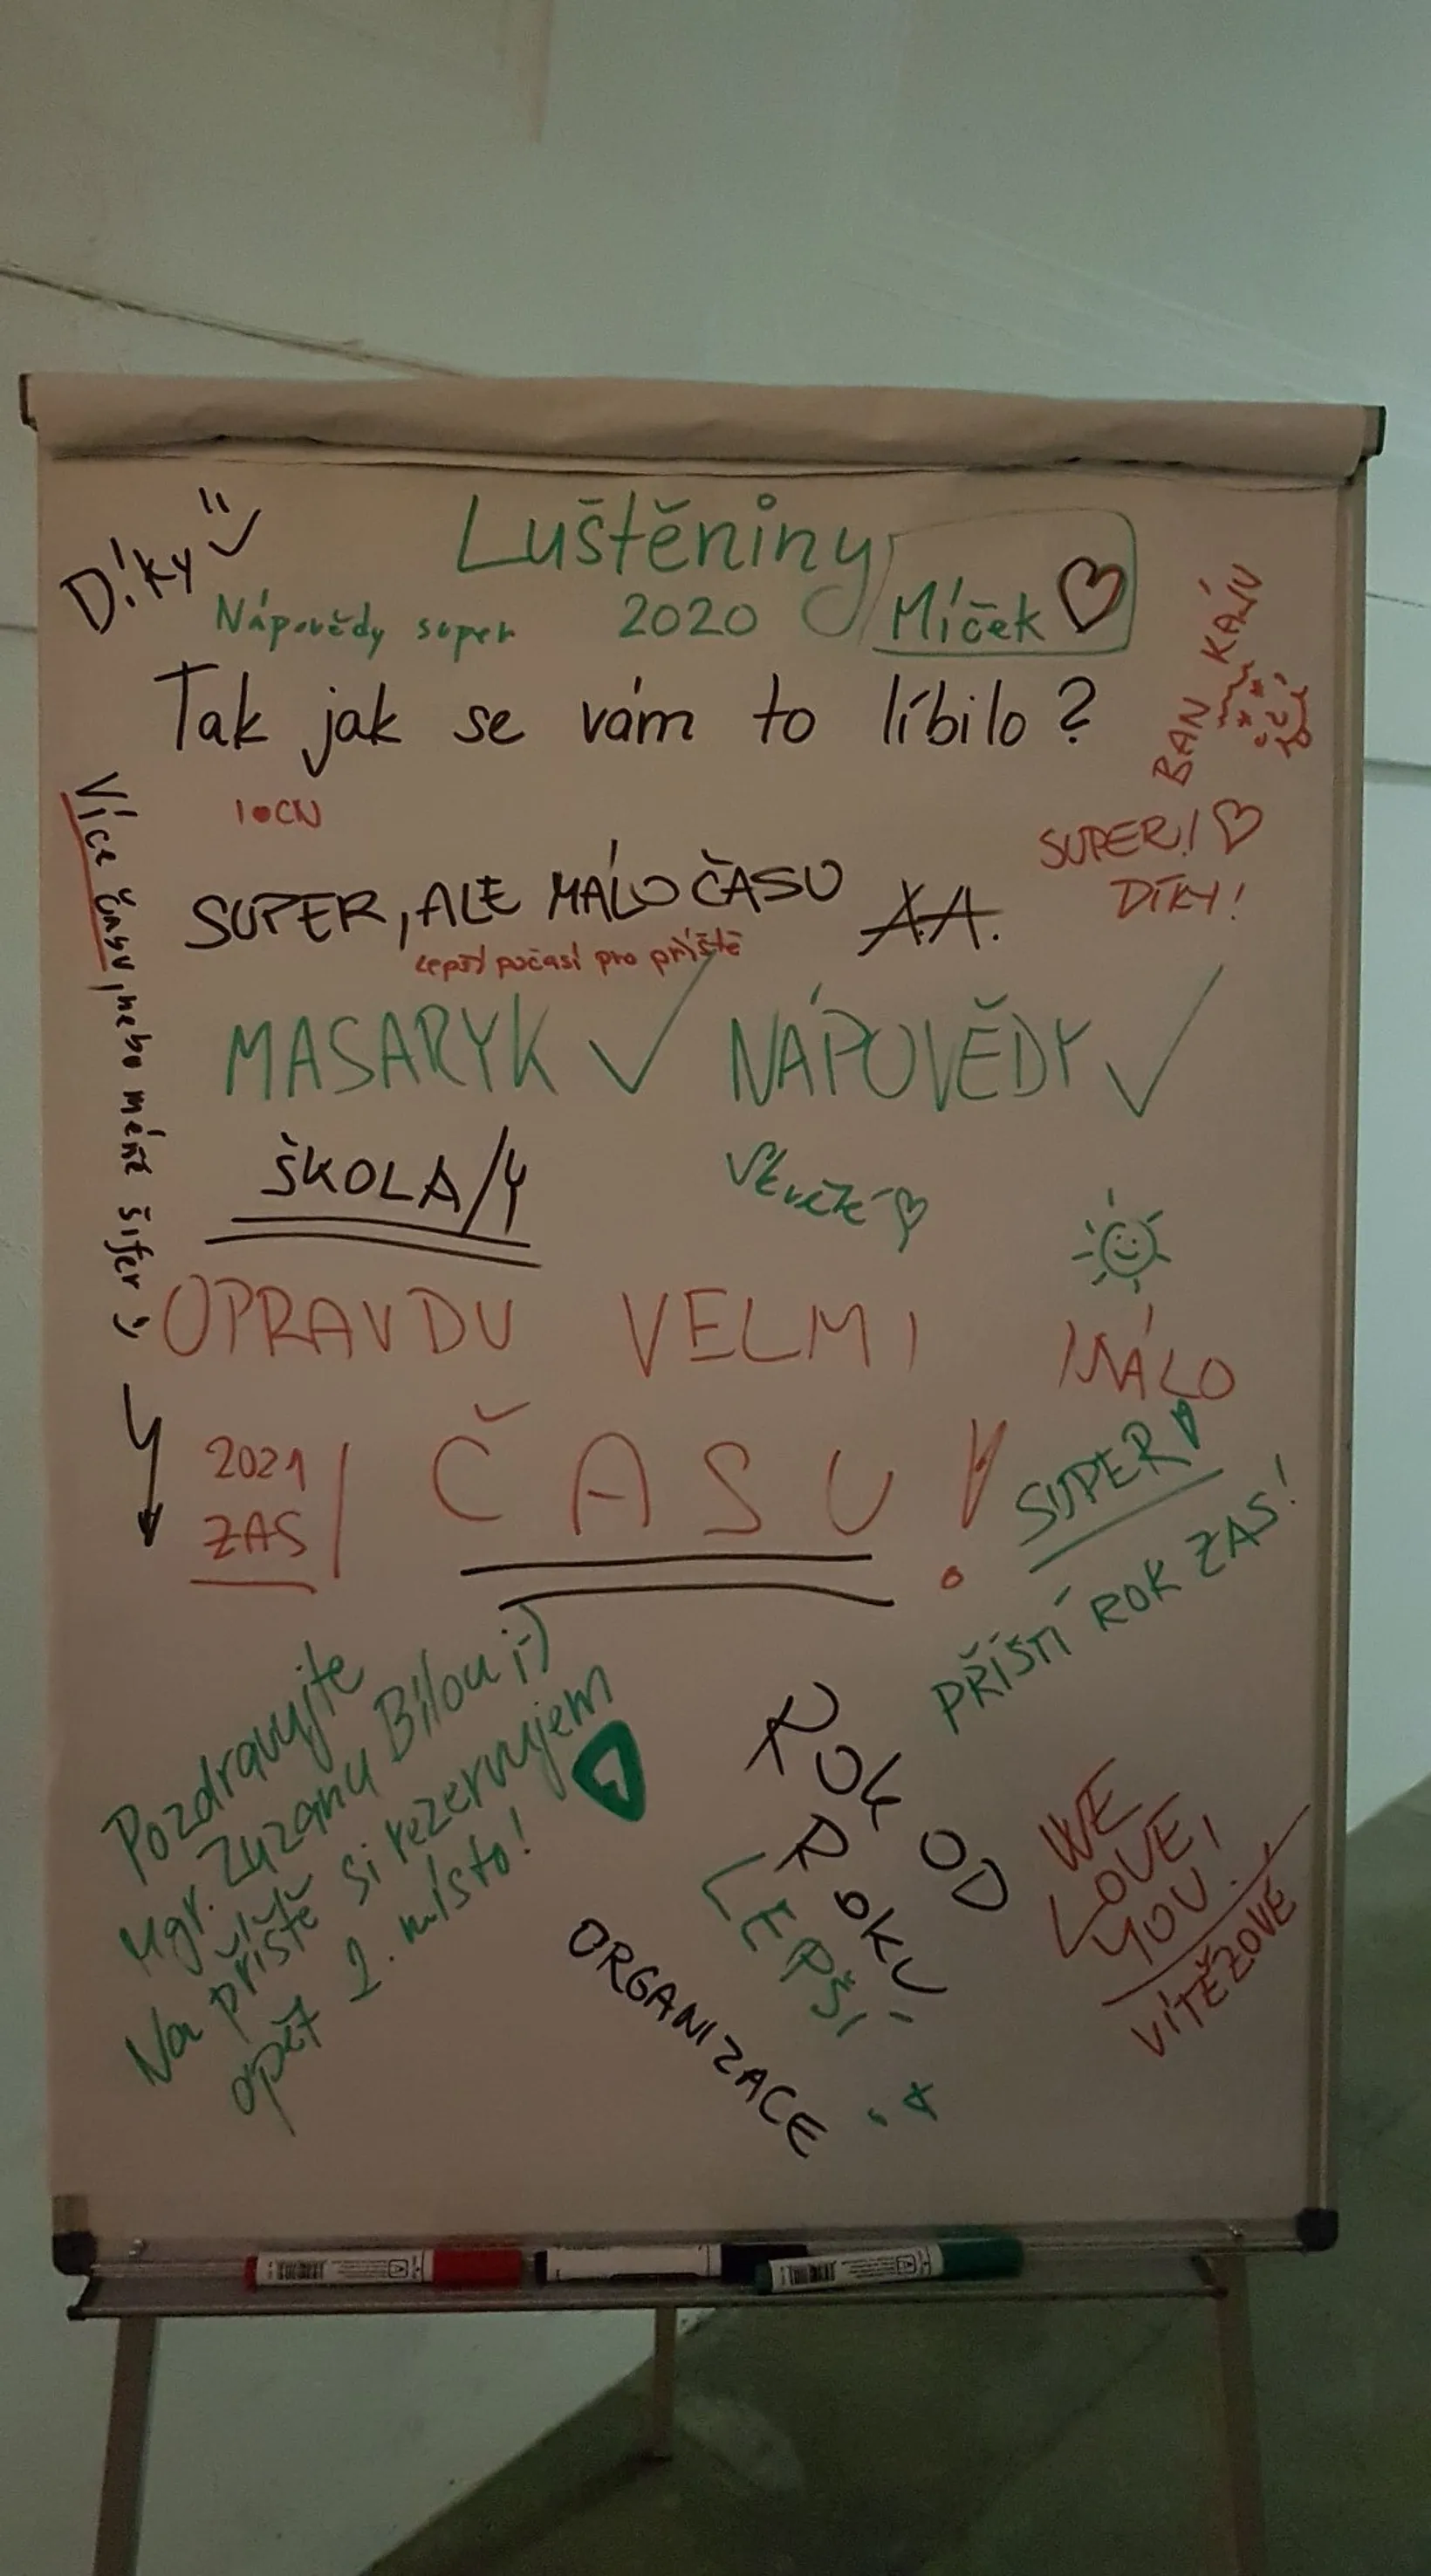 Díky
Luštěniny
2020
Míček
Nápovědy super
Tak jak se vám to líbilo?
BAN KÁJU
SUPER! 
DÍKY!
Více času, nebo méně šifer :)
SUPER, ALE MÁLO ČASU
A.A.
lepší počasí pro příště
MASARYK ✓ NÁPOVĚDY ✓
ŠKOLA/Y
OPRAVDU VELMI MÁLO
ČASU!
2021
ZAS
SUPER
PŘÍŠTÍ ROK ZAS!
Pozdravujte
Mgr. Zuzanu Bílou :)
Na příště si rezervujem
opět 2. místo!
ROK OD
ROKU
LEPŠÍ
ORGANIZACE
WE
LOVE
YOU
VÍTĚZOVÉ